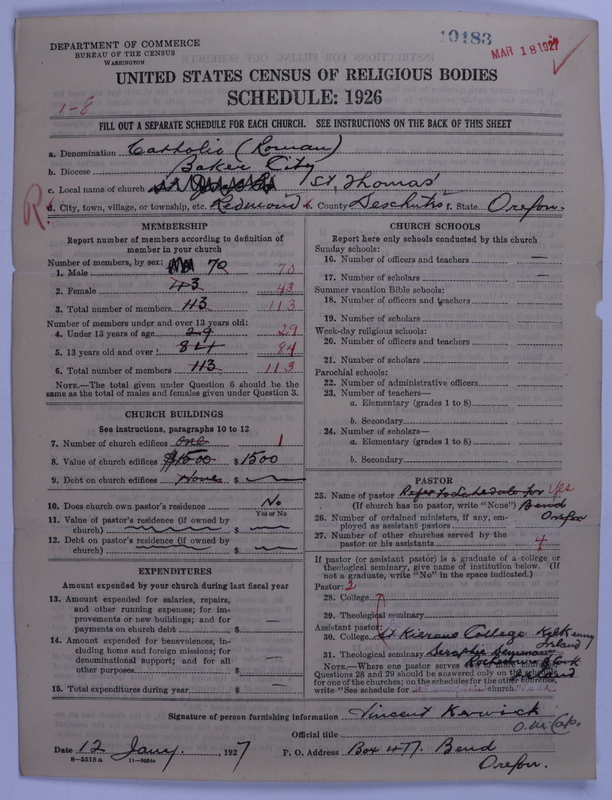 DEPARTMENT OF COMMERCE
BUREAU OF THE CENSUS
WASHINGTON
10183
MAR 18 1927
UNITED STATES CENSUS OF RELIGIOUS BODIES
SCHEDULE: 1926
1-8
FILL OUT A SEPARATE SCHEDULE FOR EACH CHURCH. SEE INSTRUCTIONS ON THE BACK OF THIS SHEET
a. Denomination Catholic (Roman)
b. Diocese Baker City
c. Local name of church St Thomas'
R.
d. City, town, village, or township, etc. Redmond e. County Deschutes f. State Oregon.
MEMBERSHIP
Report number of members according to definition of
member in your church
Number of members, by sex:
1. Male 70 70
2. Female 43 43
3. Total number of members 113 113
Number of members under and over 13 years old:
4. Under 13 years of age 29 29
5. 13 years old and over 84 84
6. Total number of members 113 113
NOTE.—The total given under Question 6 should be the
same as the total of males and females given under Question 3.
CHURCH BUILDINGS
See instructions, paragraphs 10 to 12
7. Number of church edifices one 1
8. Value of church edifices $1500 $1500
9. Debt on church edifices None $
10. Does church own pastor's residence No
Yes or No
11. Value of pastor's residence (if owned by
church) $
12. Debt on pastor's residence (if owned by
church) $
EXPENDITURES
Amount expended by your church during last fiscal year
13. Amount expended for salaries, repairs,
and other running expenses; for im-
provements or new buildings; and for
payments on church debt $ —
14. Amount expended for benevolences, in-
cluding home and foreign missions; for
denominational support; and for all
other purposes $
15. Total expenditures during year $ —
CHURCH SCHOOLS
Report here only schools conducted by this church
Sunday schools:
16. Number of officers and teachers —
17. Number of scholars —
Summer vacation Bible schools:
18. Number of officers and teachers
19. Number of scholars
Week-day religious schools:
20. Number of officers and teachers
21. Number of scholars
Parochial schools:
22. Number of administrative officers
23. Number of teachers—
a. Elementary (grades 1 to 8)
b. Secondary
24. Number of scholars—
a. Elementary (grades 1 to 8)
b. Secondary
PASTOR
25. Name of pastor Refer to Schedule for Yes
(If church has no pastor, write "None") Bend
Oregon
26. Number of ordained ministers, if any, em-
ployed as assistant pastors
27. Number of other churches served by the
pastor or his assistants 4
If pastor (or assistant pastor) is a graduate of a college or
theological seminary, give name of institution below. (If
not a graduate, write "No" in the space indicated.)
Pastor: 2
28. College
29. Theological seminary
Assistant pastor:
30. College St Kierans College Kilkenny
Ireland
31. Theological seminary Seraphic Seminary
Rochestown Cork
NOTE.—Where one pastor serves two or more churches,
Questions 28 and 29 should be answered only on the schedule
for one of the churches; on the schedules for the other churches,
write "See schedule for church."
Signature of person furnishing information Vincent Kerwick
Official title O.M.Cap.
Date 12 Jany. 1927 P. O. Address Box 477. Bend
Oregon.
8-5518 a